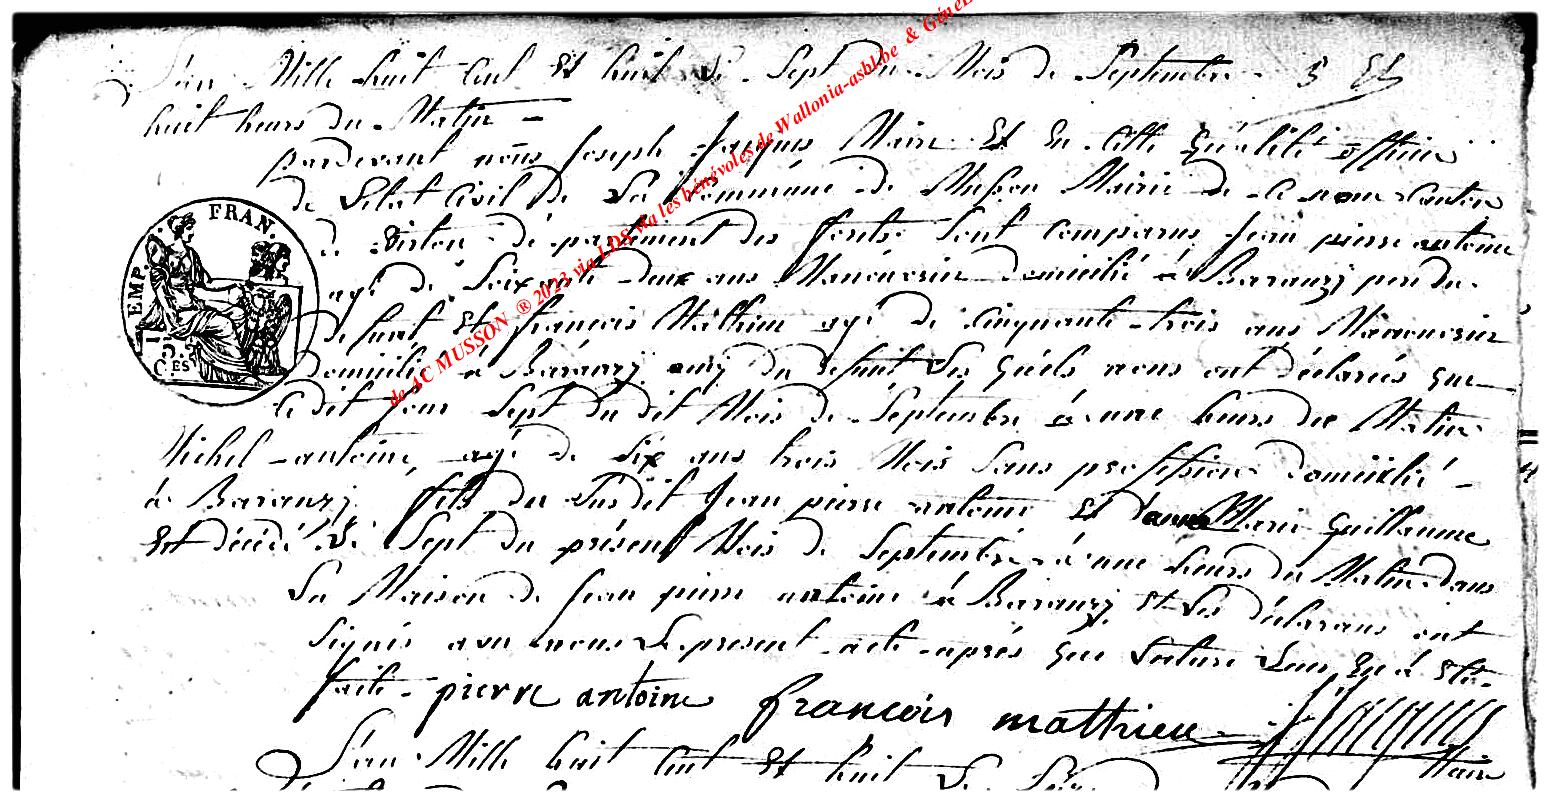 L'an Mille huit Cent Et huit Le Sept du Mois de Septembre a
huit heurs du Matin
pardevant nous Joseph Jacques Maire Et En Cette Qualité officie
de L'état Civil de La Commune de Musson Mairie de ce nom Canton
de Virton département des forêts Sont Comparus Jean pierre antoine
agé de Soixante deux ans Manoeuvrier domicilié à Baranzy per du
defunt Et francois Mathieu agé de Cinquante trois ans Manoeuvrier
domicilié à Baranzy amy du defunt Les Quels nous ont déclarés que
Ce dit Jour Sept du dit Mois de Septembre à une heurs du Matin
Michel antoine agé de Six ans trois Mois Sans profession domicilié
à Baranzy fils du Susdit Jean pierre antoine Et d'anne Marie Guillaume
Est décédé Le Sept du présent Mois de Septembre à une heurs du Matin dans
La Maison de Jean pierre antoine à Baranzy Et Les déclarans ont
Signés avec nous Le present acte après que Lecture Leur En à Eté
faite pierre antoine françois mathieu
Maire
L'an Mille huit Cent Et huit Le
EMP. FRAN.
75 CES.
de AC MUSSON ® 2023 via LDS via les bénévoles de Wallonia-asbl.be & GéneL